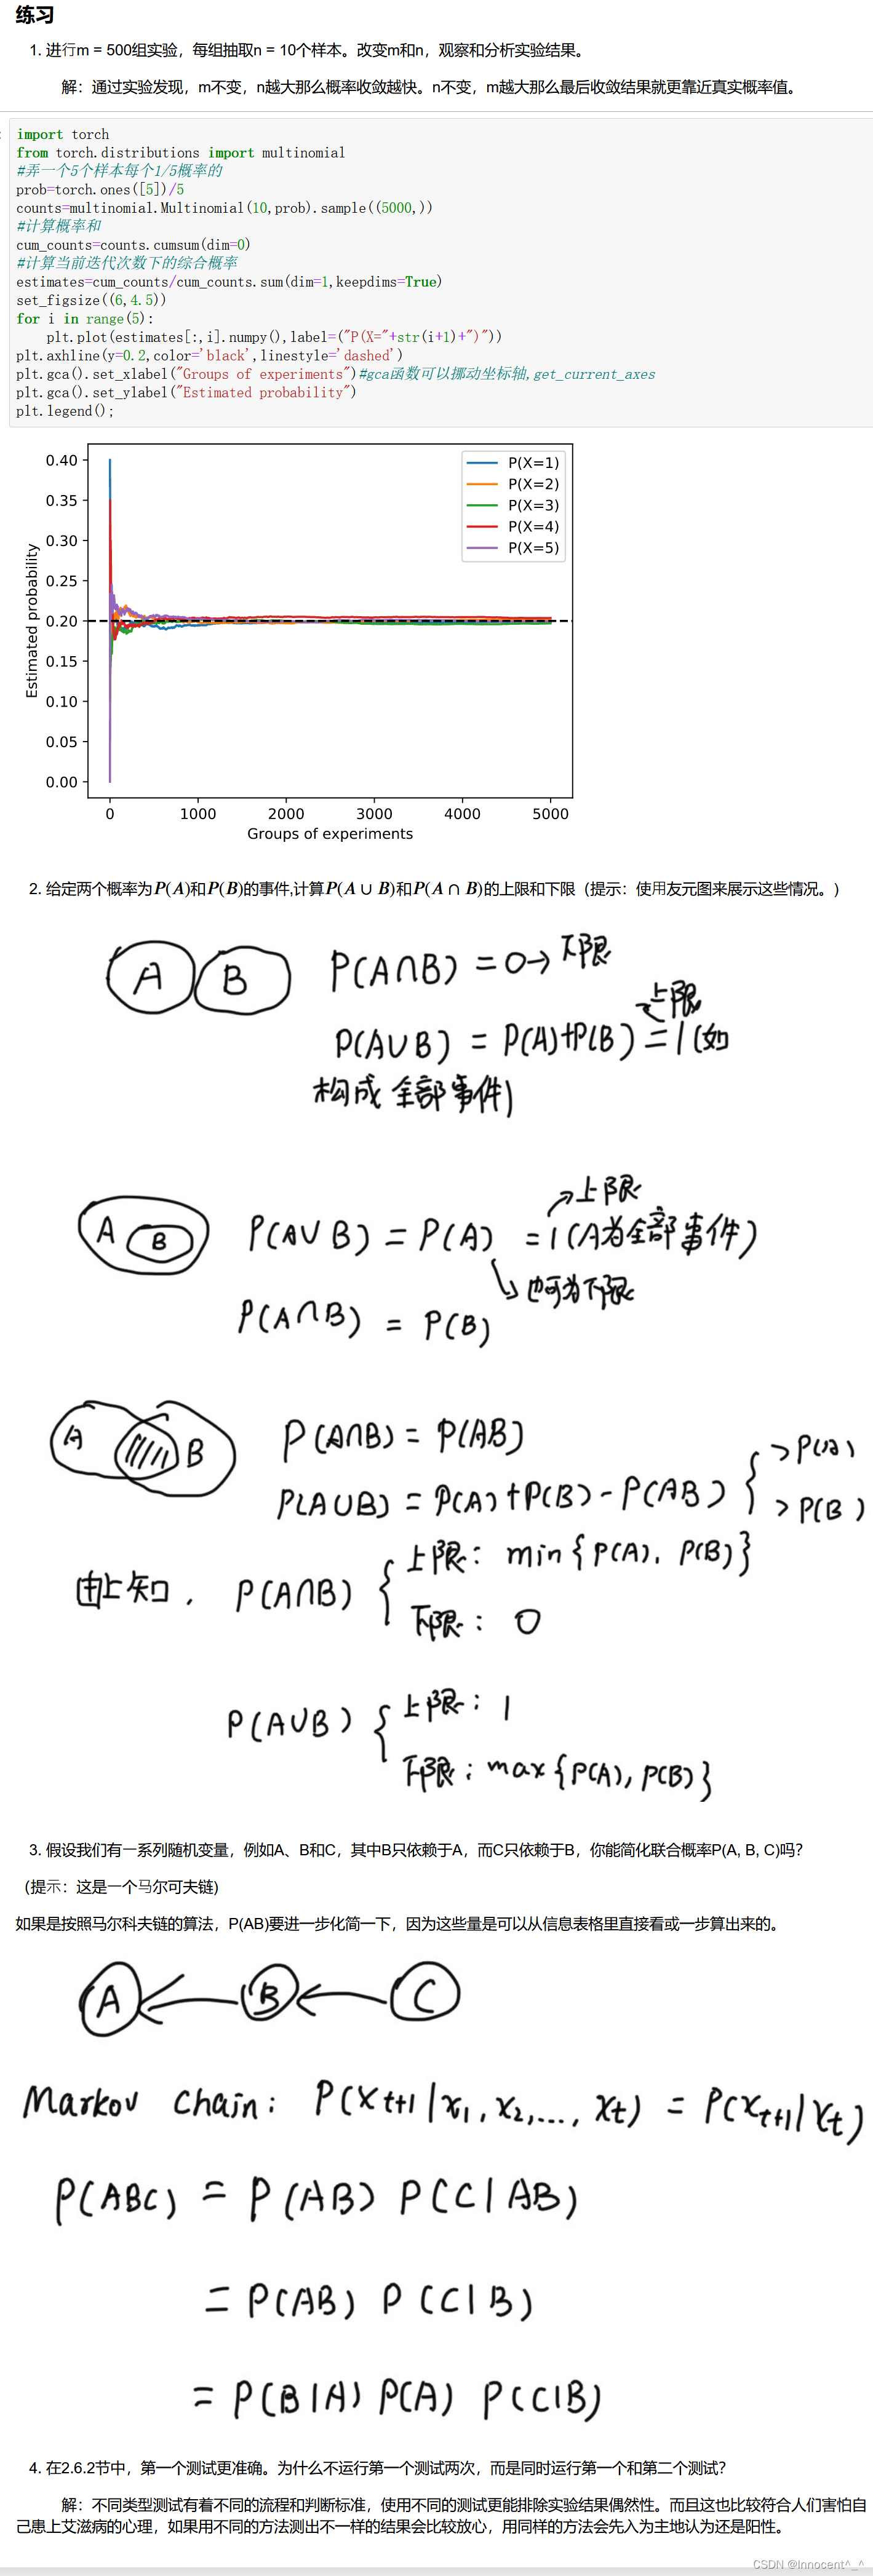 练习
1. 进行m = 500组实验，每组抽取n = 10个样本。改变m和n，观察和分析实验结果。
解：通过实验发现，m不变，n越大那么概率收敛越快。n不变，m越大那么最后收敛结果就更靠近真实概率值。
import torch
from torch.distributions import multinomial
#弄一个5个样本每个1/5概率的
prob=torch.ones([5])/5
counts=multinomial.Multinomial(10,prob).sample((5000,))
#计算概率和
cum_counts=counts.cumsum(dim=0)
#计算当前迭代次数下的综合概率
estimates=cum_counts/cum_counts.sum(dim=1,keepdims=True)
set_figsize((6,4.5))
for i in range(5):
    plt.plot(estimates[:,i].numpy(),label=("P(X="+str(i+1)+")"))
plt.axhline(y=0.2,color='black',linestyle='dashed')
plt.gca().set_xlabel("Groups of experiments")#gca函数可以挪动坐标轴,get_current_axes
plt.gca().set_ylabel("Estimated probability")
plt.legend();
0.40
0.35
0.30
0.25
0.20
0.15
0.10
0.05
0.00
Estimated probability
P(X=1)
P(X=2)
P(X=3)
P(X=4)
P(X=5)
0 1000 2000 3000 4000 5000
Groups of experiments
2. 给定两个概率为P(A)和P(B)的事件,计算P(A ∪ B)和P(A ∩ B)的上限和下限（提示：使用友元图来展示这些情况。）
A B P(A∩B) = 0→下限
上限
P(A∪B) = P(A)+P(B) = 1 (如
构成全部事件)
上限
A B P(A∪B) = P(A) = 1 (A为全部事件)
也可为下限
P(A∩B) = P(B)
A B P(A∩B) = P(AB)
P(A∪B) = P(A)+P(B)-P(AB) { >P(A)
>P(B)
由上知， P(A∩B) { 上限：min{P(A), P(B)}
下限：0
P(A∪B) { 上限：1
下限：max{P(A), P(B)}
3. 假设我们有一系列随机变量，例如A、B和C，其中B只依赖于A，而C只依赖于B，你能简化联合概率P(A, B, C)吗？
（提示：这是一个马尔可夫链)
如果是按照马尔科夫链的算法，P(AB)要进一步化简一下，因为这些量是可以从信息表格里直接看或一步算出来的。
A ← B ← C
Markov chain: P(X_{t+1}|x_1, x_2, ..., x_t) = P(x_{t+1}|x_t)
P(ABC) = P(AB) P(C|AB)
= P(AB) P(C|B)
= P(B|A) P(A) P(C|B)
4. 在2.6.2节中，第一个测试更准确。为什么不运行第一个测试两次，而是同时运行第一个和第二个测试？
解：不同类型测试有着不同的流程和判断标准，使用不同的测试更能排除实验结果偶然性。而且这也比较符合人们害怕自
己患上艾滋病的心理，如果用不同的方法测出不一样的结果会比较放心，用同样的方法会先入为主地认为还是阳性。
CSDN @Innocent^_^